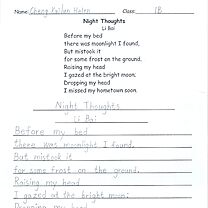 Name: Cheng Kailen Helen Class: 1B
Night Thoughts
Li Bai
Before my bed
there was moonlight I found,
But mistook it
for some frost on the ground.
Raising my head
I gazed at the bright moon;
Dropping my head
I missed my hometown soon.
Night Thoughts
Li Bai
Before my bed
there was moonlight I found,
But mistook it
for some frost on the ground.
Raising my head
I gazed at the bright moon;
Dropping my head